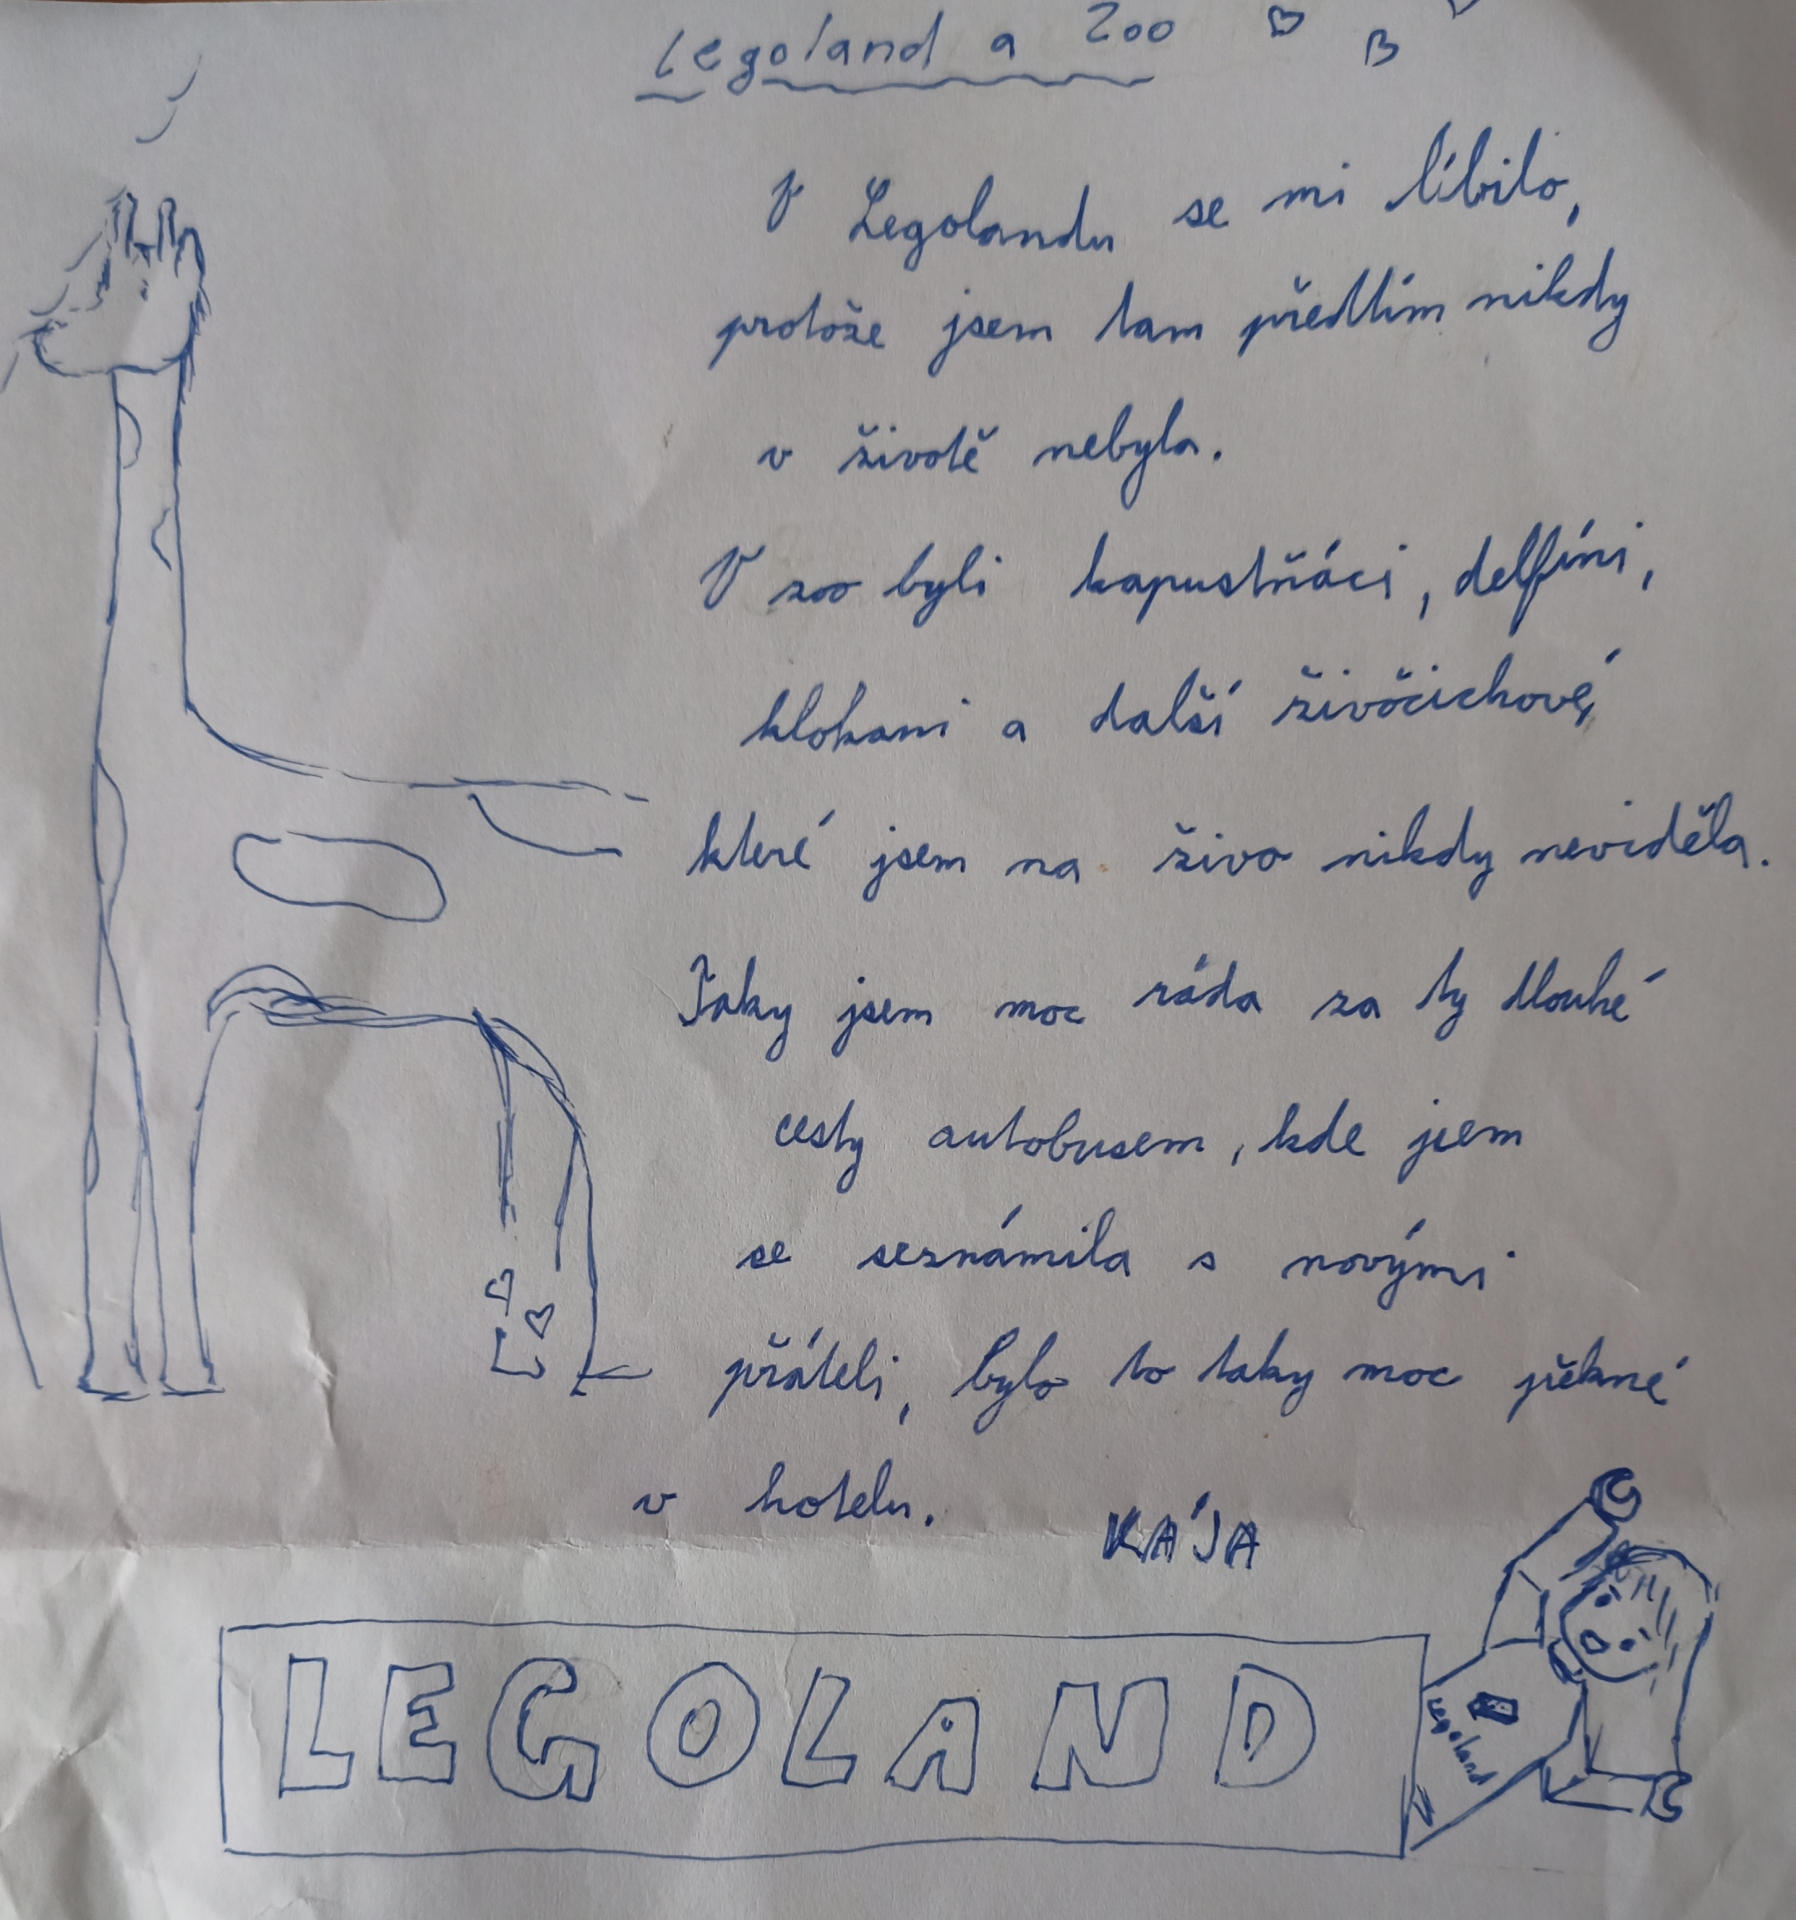 Legoland a Zoo
V Legolandu se mi líbilo,
protože jsem tam předtím nikdy
v životě nebyla.
V zoo byli kapustňáci, delfíni,
klokani a další živočichové,
které jsem na živo nikdy neviděla.
Taky jsem moc ráda za ty dlouhé
cesty autobusem, kde jsem
se seznámila s novými
přáteli, bylo to taky moc pěkné
v hotelu.
KÁJA
LEGOLAND
Legoland